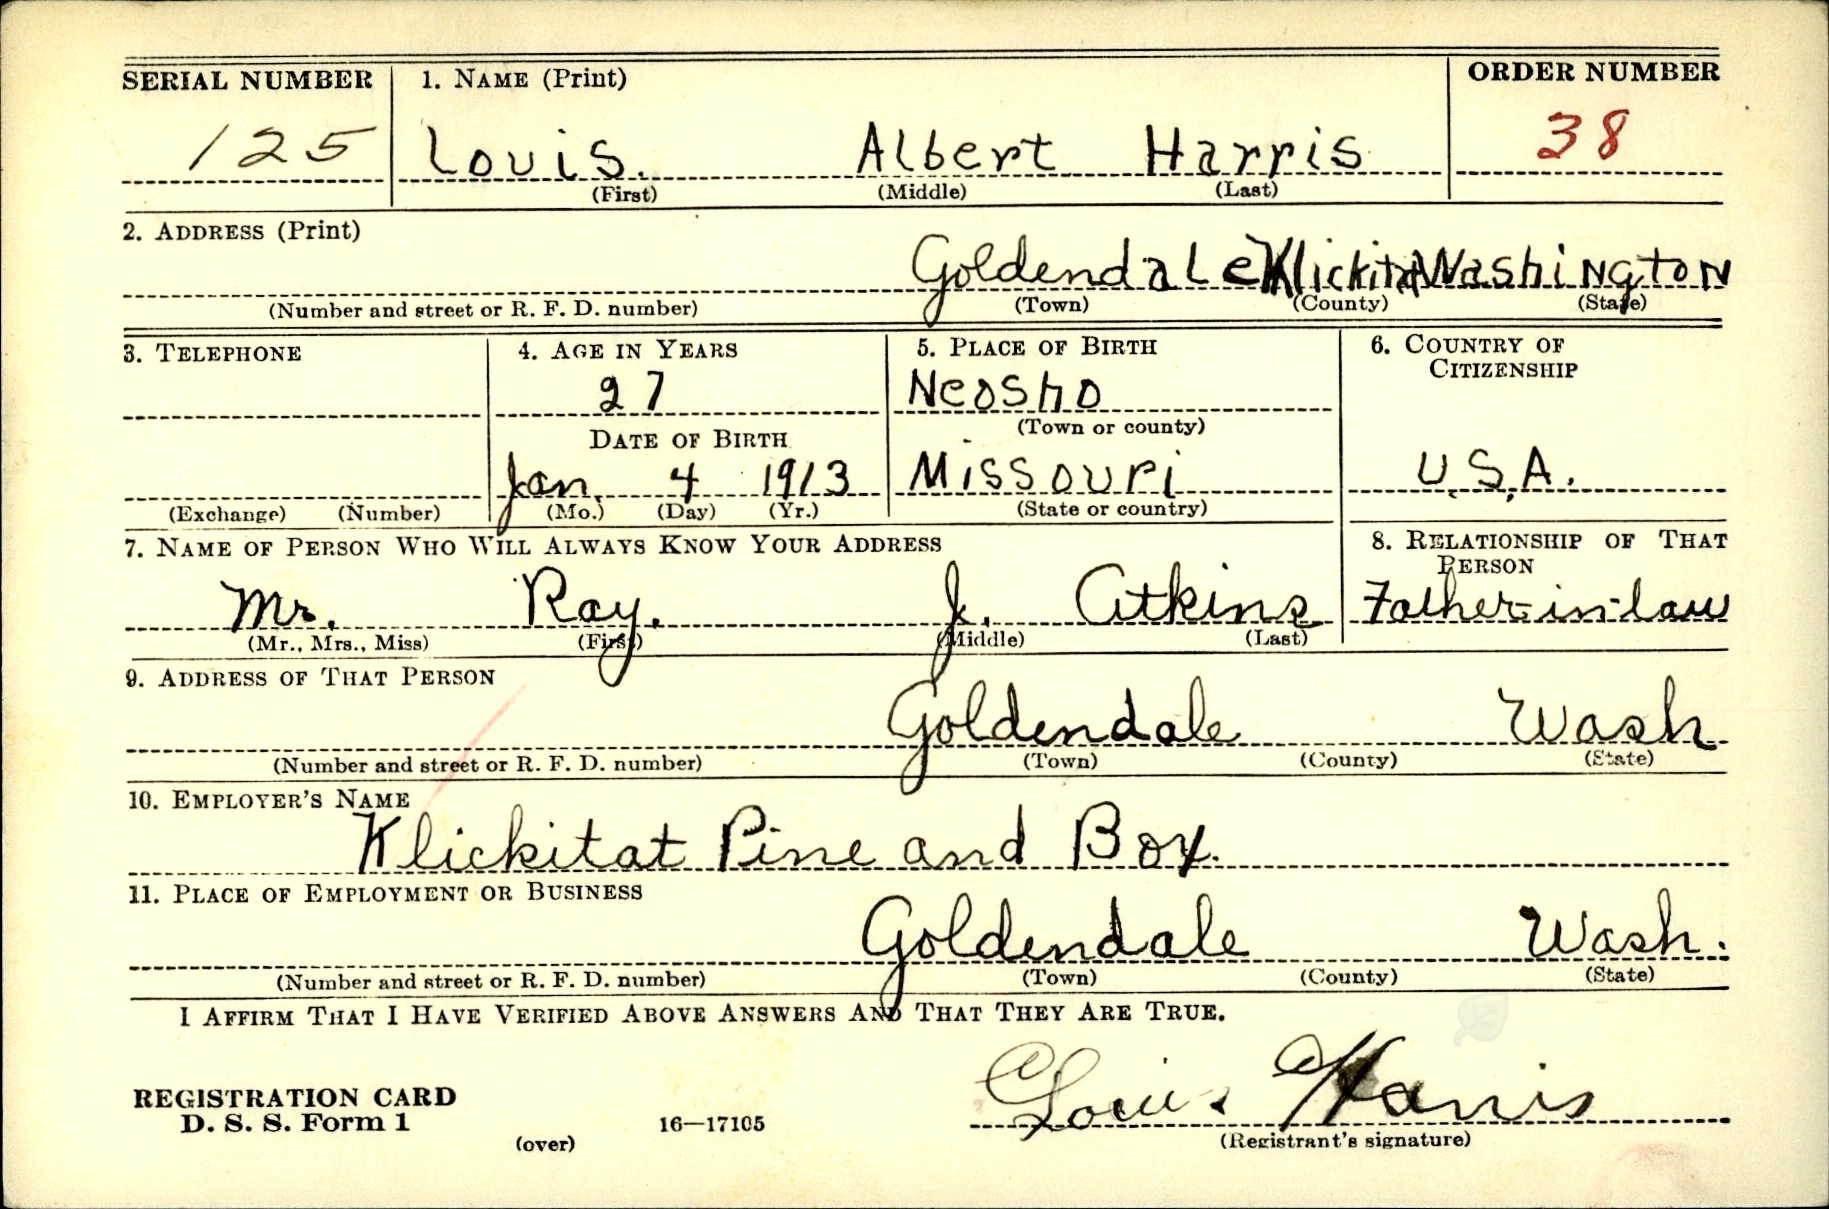 SERIAL NUMBER 1. NAME (Print) ORDER NUMBER
125 Louis. Albert Harris 38
(First) (Middle) (Last)
2. ADDRESS (Print)
Goldendale Klickitat Washington
(Number and street or R. F. D. number) (Town) (County) (State)
3. TELEPHONE 4. AGE IN YEARS 5. PLACE OF BIRTH 6. COUNTRY OF
CITIZENSHIP
27 Neosho
(Town or county)
DATE OF BIRTH
Jan. 4 1913 Missouri U.S.A.
(Exchange) (Number) (Mo.) (Day) (Yr.) (State or country)
7. NAME OF PERSON WHO WILL ALWAYS KNOW YOUR ADDRESS 8. RELATIONSHIP OF THAT
PERSON
Mr. Ray. J. Atkins Father-in-law
(Mr., Mrs., Miss) (First) (Middle) (Last)
9. ADDRESS OF THAT PERSON
Goldendale Wash
(Number and street or R. F. D. number) (Town) (County) (State)
10. EMPLOYER'S NAME
Klickitat Pine and Box.
11. PLACE OF EMPLOYMENT OR BUSINESS
Goldendale Wash.
(Number and street or R. F. D. number) (Town) (County) (State)
I AFFIRM THAT I HAVE VERIFIED ABOVE ANSWERS AND THAT THEY ARE TRUE.
Louis Harris
REGISTRATION CARD
D. S. S. Form 1
(over) 16—17105 (Registrant's signature)